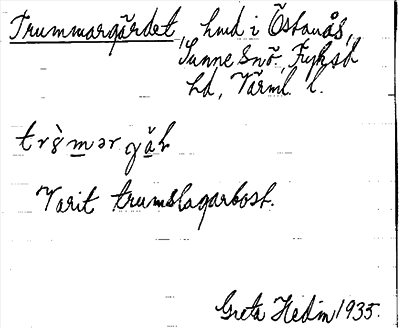 Trummargärdet, hmd i Östanås,
Sunne Snö, Fryksd
hd, Värml. l.
Varit trumslagarbost.
Greta Hedin 1935.